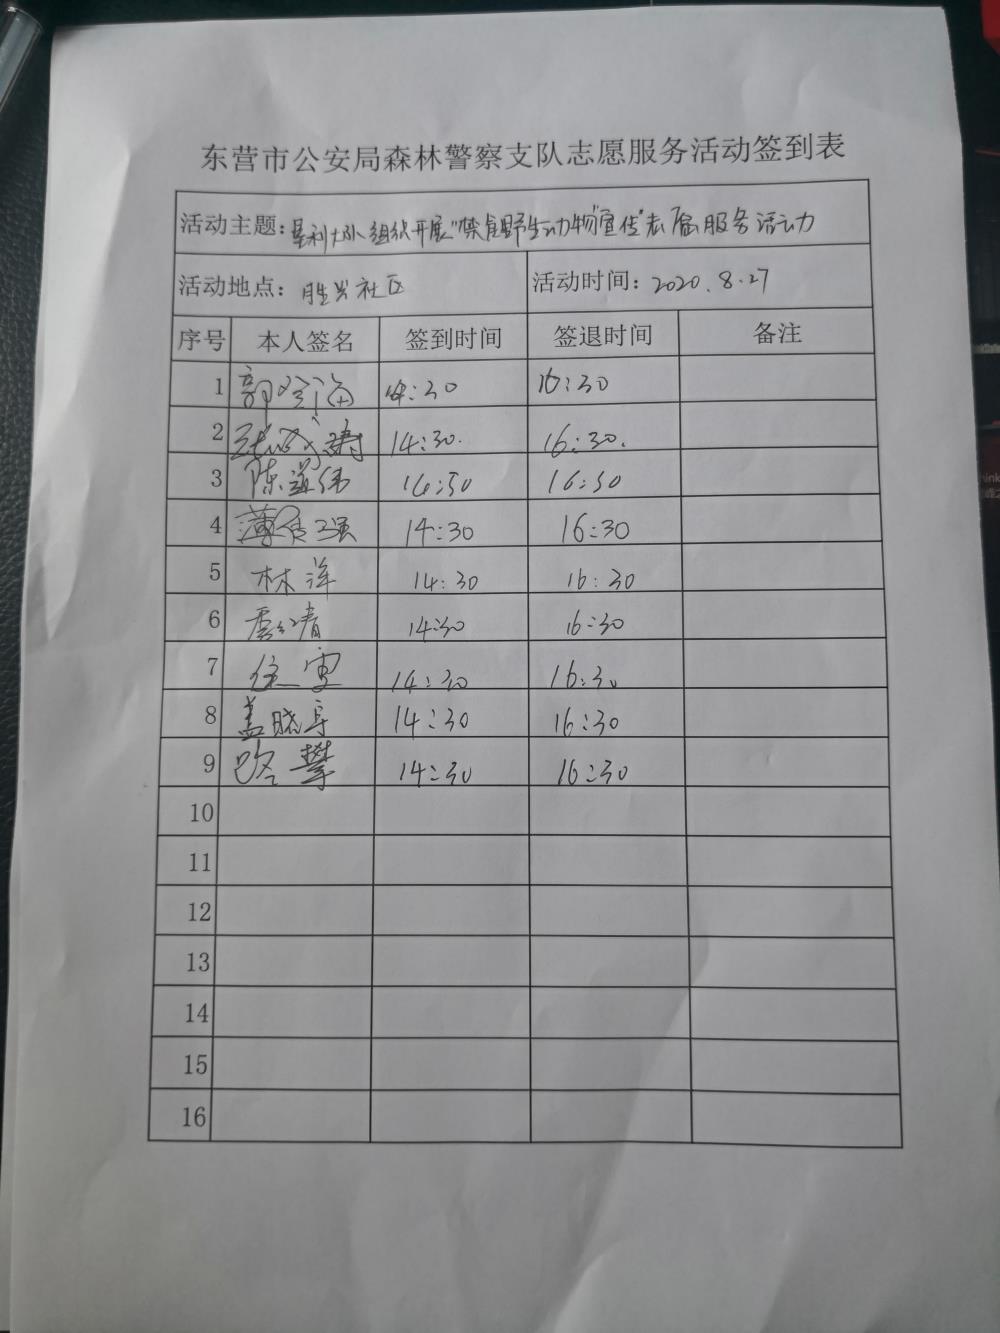 东营市公安局森林警察支队志愿服务活动签到表
活动主题：垦利大队组织开展"禁食野生动物"宣传志愿服务活动
活动地点：胜兴社区 活动时间：2020.8.27
序号 本人签名 签到时间 签退时间 备注
1 14:30 16:30
2 14:30. 16:30.
3 陈道伟 14:30 16:30
4 14:30 16:30
5 林洋 14:30 16:30
6 14:30 16:30
7 徐雯 14:30 16:30
8 盖晓亭 14:30 16:30
9 14:30 16:30
10
11
12
13
14
15
16